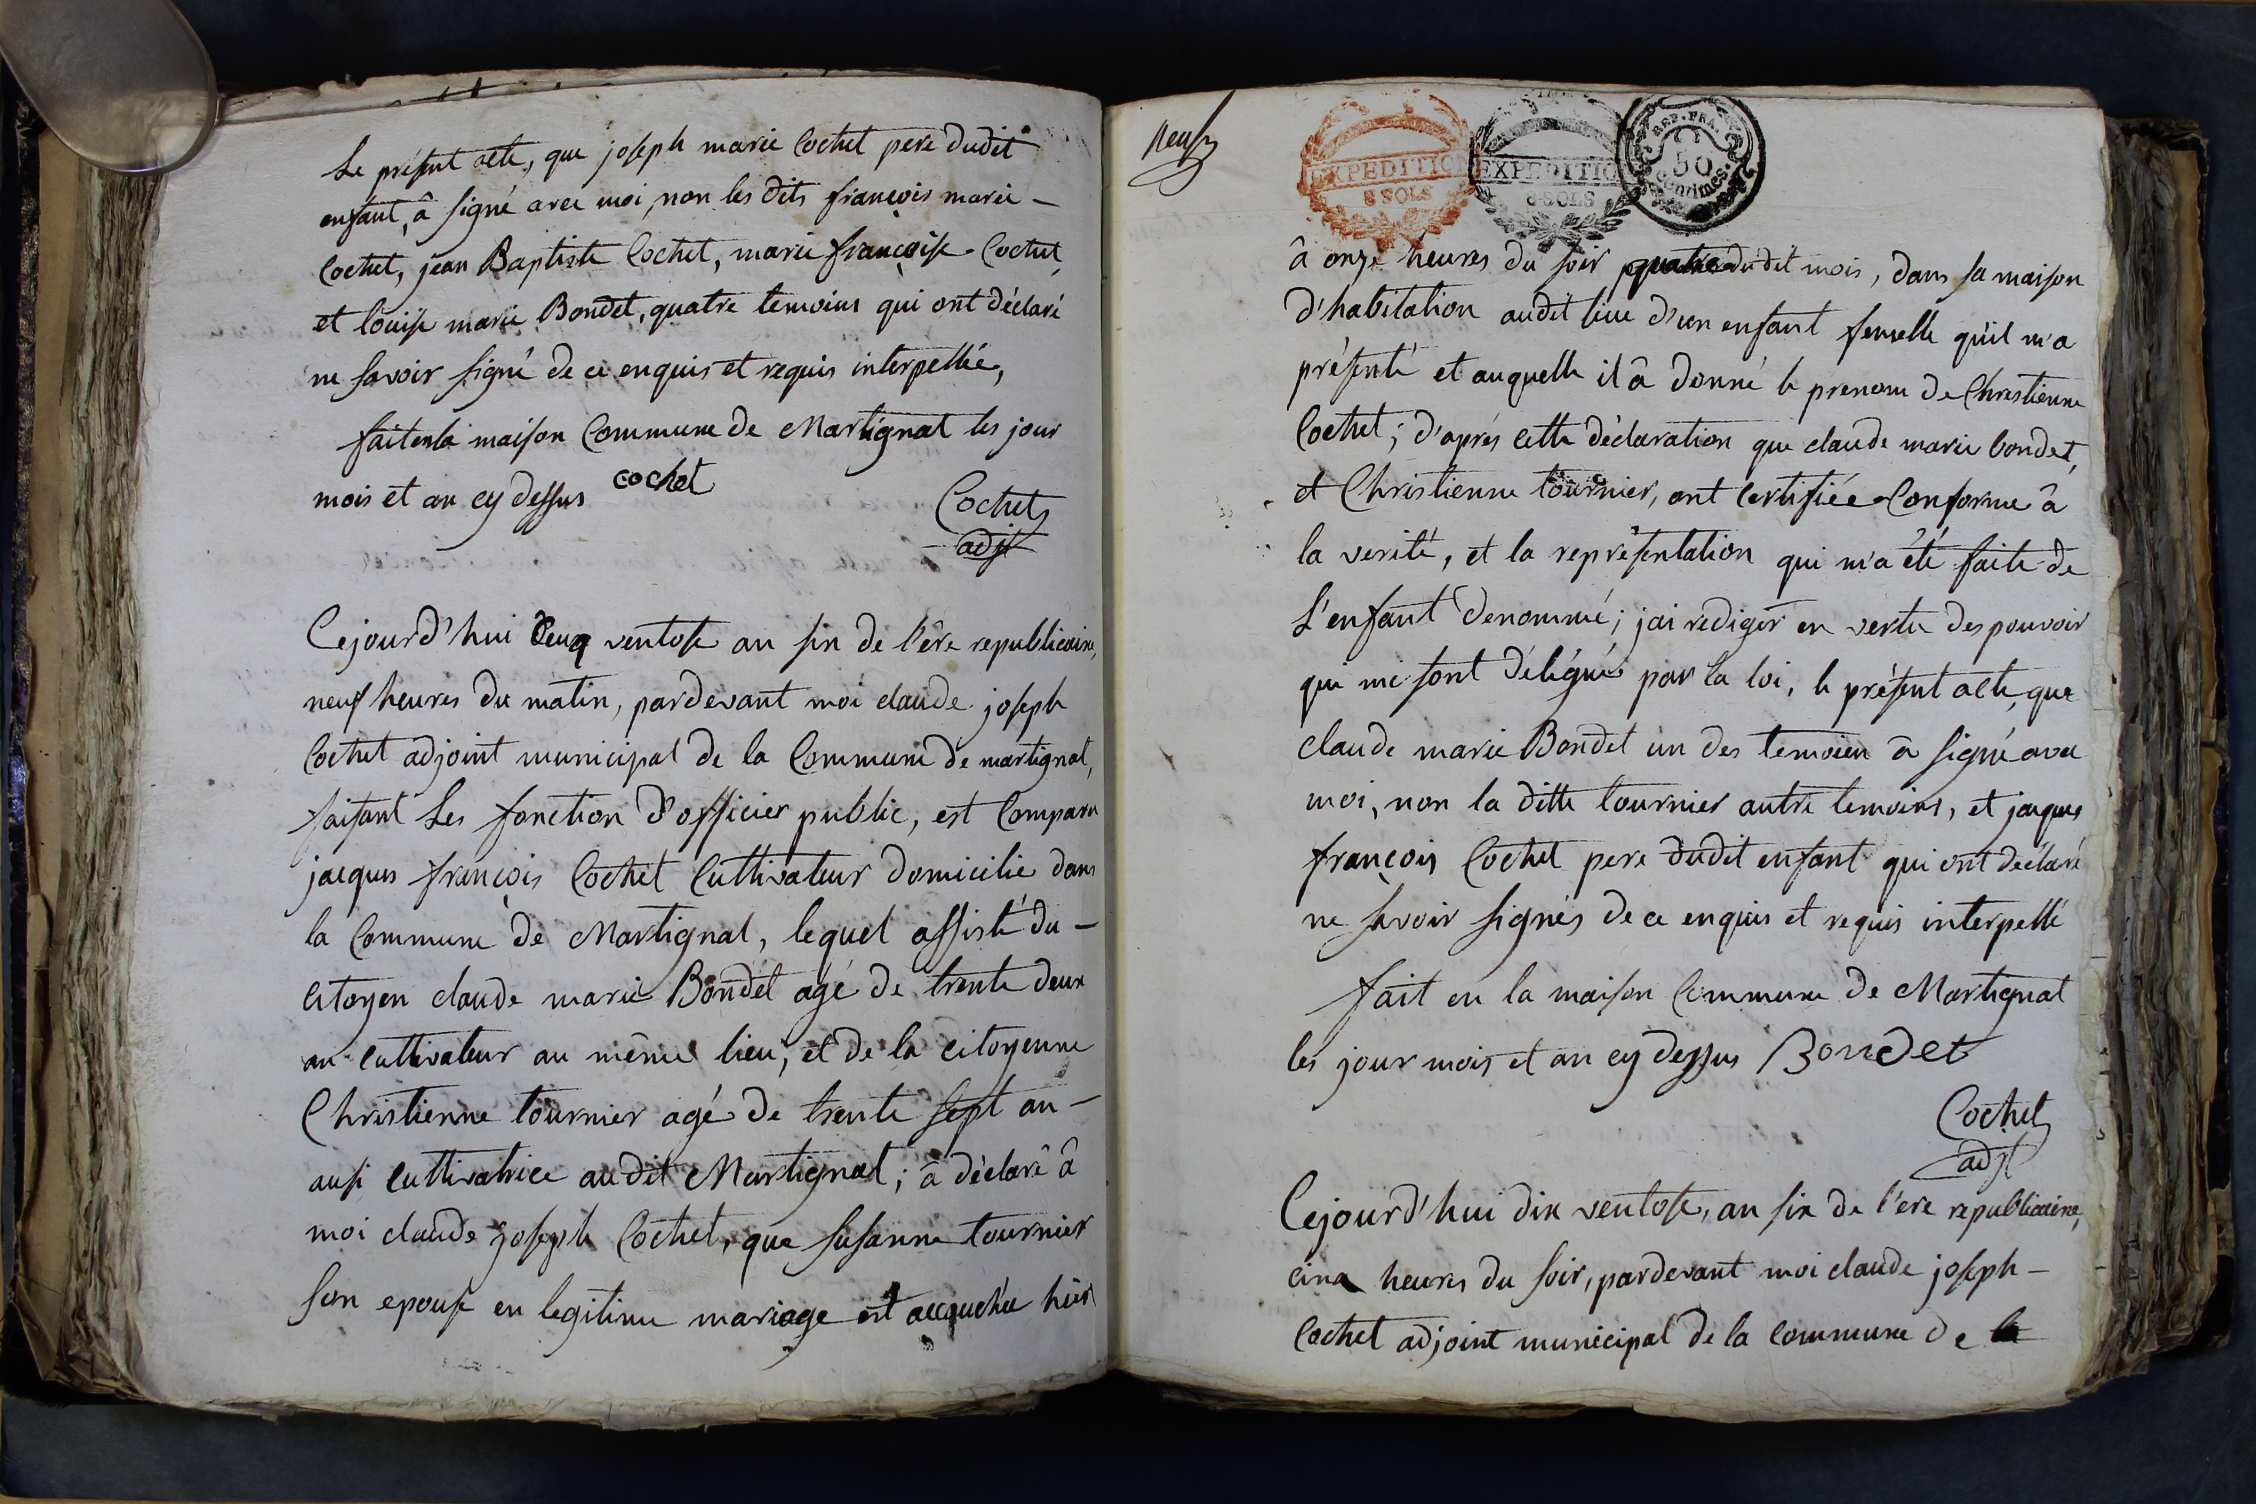 Le présent acte, que joseph marie Cochet pere dudit
enfant, â signé avec moi, non les dits françois marie -
Cochet, jean Baptiste Cochet, marie françoise Cochet
et loüise marie Bondet, quatre temoins qui ont déclaré
ne savoir signé de ce enquis et requis interpellée,
fait en la maison Commune de Martignat les jour
mois et an cy dessus cochet
Cochet
adjt
Cejourd'hui deux ventose an six de l'êre republicaine,
neuf heures du matin, pardevant moi claude joseph
Cochet adjoint municipal de la Commune de martignat,
faisant Les fonction d'officier public, est Comparu
jacques françois Cochet Cultivateur domicilié dans
la Commune de Martignat, lequel assisté du -
citoyen claude marie Bondet agé de trente deux
an cultivateur au même lieu, et de la citoyenne
Christienne tournier agé de trente sept an -
ausi cultivatrice audit Martignat; â déclaré â
moi claude joseph Cochet, que susanne tournier
son epouse en legitime mariage est accouchée hièr
neuf
EXPEDITION
8 SOLS
EXPEDITION
8 SOLS
REP. FRA.
50
Centimes.
â onze heures du soir dudit mois, dans sa maison
d'habitation audit lieu d'un enfant femelle qu'il m'a
présenté et auquelle il â donné le prenom de Chrestienne
Cochet; d'aprés cette déclaration que claude marie bondet,
et Christienne tournier, ont certifiée Conforme â
la verité, et la représentation qui m'a été faite de
L'enfant denommé; jai rediger en vertu des pouvoir
qui me sont délégués par la loi, le présent acte, que
claude marie Bondet un des temoien â signé avec
moi, non la ditte tournier autre temoins, et jacques
françois Cochet pere dudit enfant qui ont déclaré
ne savoir signés de ce enquis et requis interpellé
fait en la maison Commune de Martignat
les jour mois et an cy dessus Bondet
Cochet
adjt
Cejourd'hui dix ventose, an six de l'ere republicaine,
cinq heures du soir, pardevant moi claude joseph -
Cochet adjoint municipal de la commune de